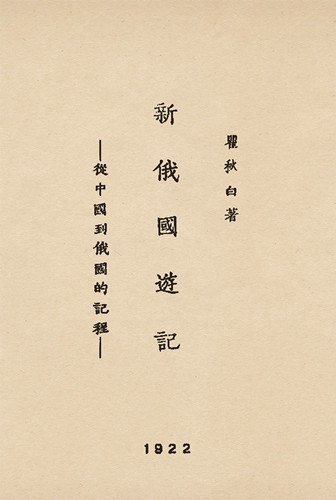 瞿秋白著
新俄國遊記
—從中國到俄國的記程—
1922